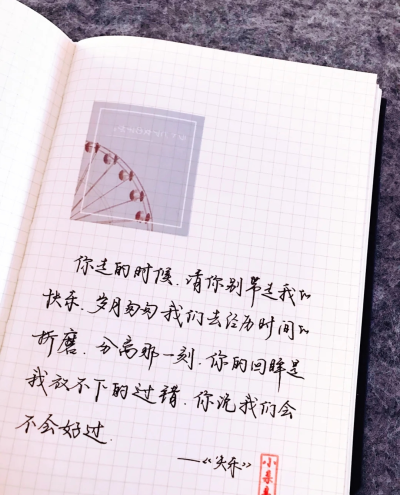 你走的时候.请你别带走我的
快乐.岁月匆匆我们去经历时间的
折磨.分离那一刻.你的回眸是
我放不下的过错.你说我们会
不会好过.
——《失乐》